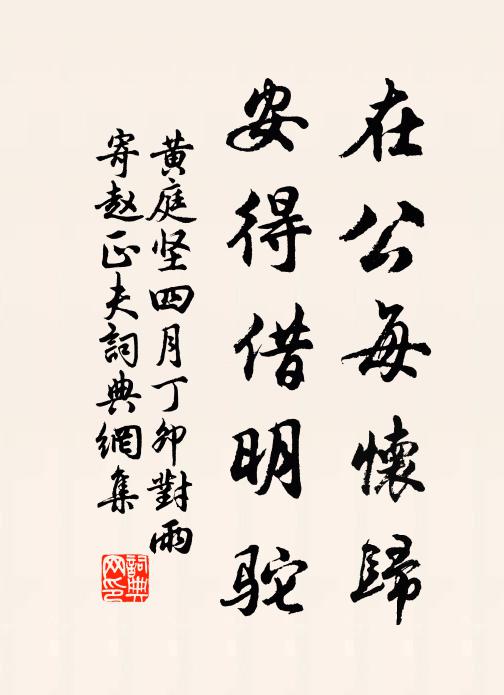 在公每懷歸
安得借明駝
黄庭坚四月丁卯對雨
寄赵正夫詞典網集
詞典
网印